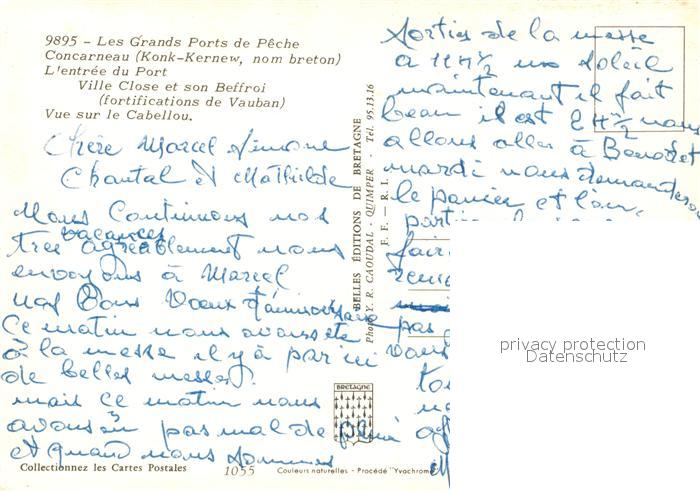 9895 - Les Grands Ports de Pêche
Concarneau (Konk-Kernew, nom breton)
L'entrée du Port
Ville Close et son Beffroi
(fortifications de Vauban)
Vue sur le Cabellou.
Chère Marcel Simone
Chantal et Mathilde
Nous Continuons nos
vacances
tres agréablement nous
envoyons à Marcel
nos Bons Voeux d'anniversaire
Ce matin nous avons été
à la messe il y à par ici
de belles messes.
mais ce matin nous
avons eu pas mal de pluie
et quand nous sommes
Collectionnez les Cartes Postales
1055
Couleurs naturelles - Procédé "Yvachrome
BRETAGNE
BELLES ÉDITIONS DE BRETAGNE
Photo Y. R. CAOUDAL - QUIMPER - Tél. 95.13.16
E. F. - R. I.
sorties de la messe
à 11H½ un soleil
maintenant il fait
beau il est 2H½ nous
allons aller à Benodet
mardi nous demanderons
le panier et l'on
partir
fair
pas
vous
to
privacy protection
Datenschutz